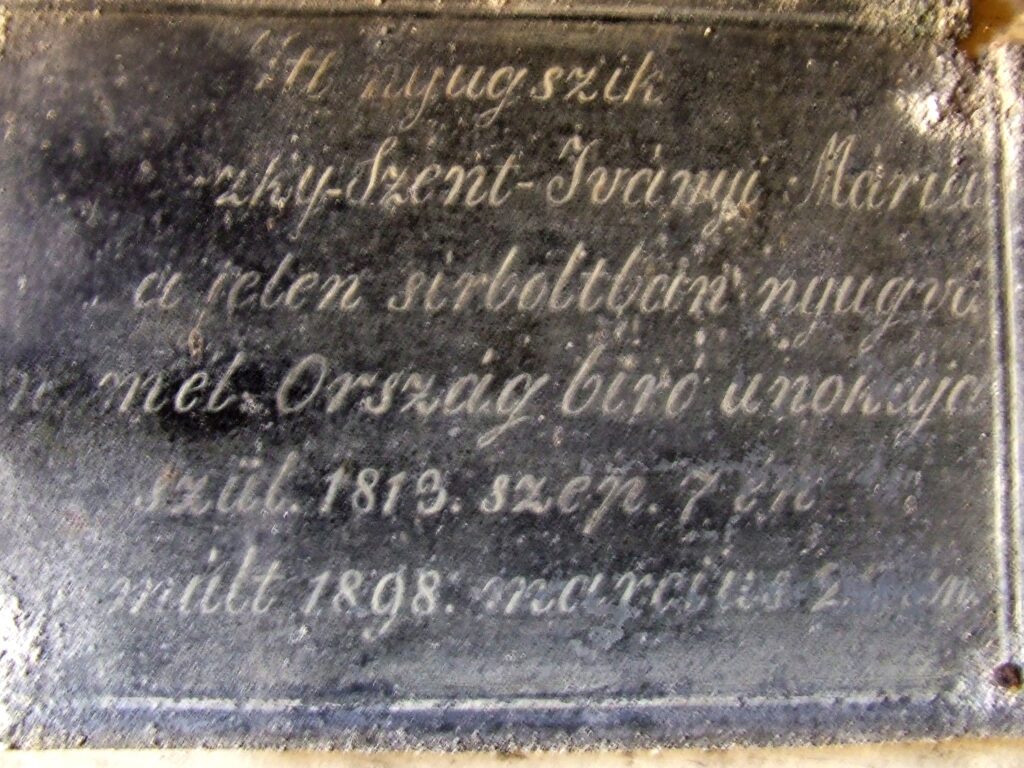 Itt nyugszik
zky-Szent-Iványi Mária
a jelen sirboltban nyugvó
mél. Ország biró unokája
szül. 1813. szep. 7 én
múlt 1898. marcius